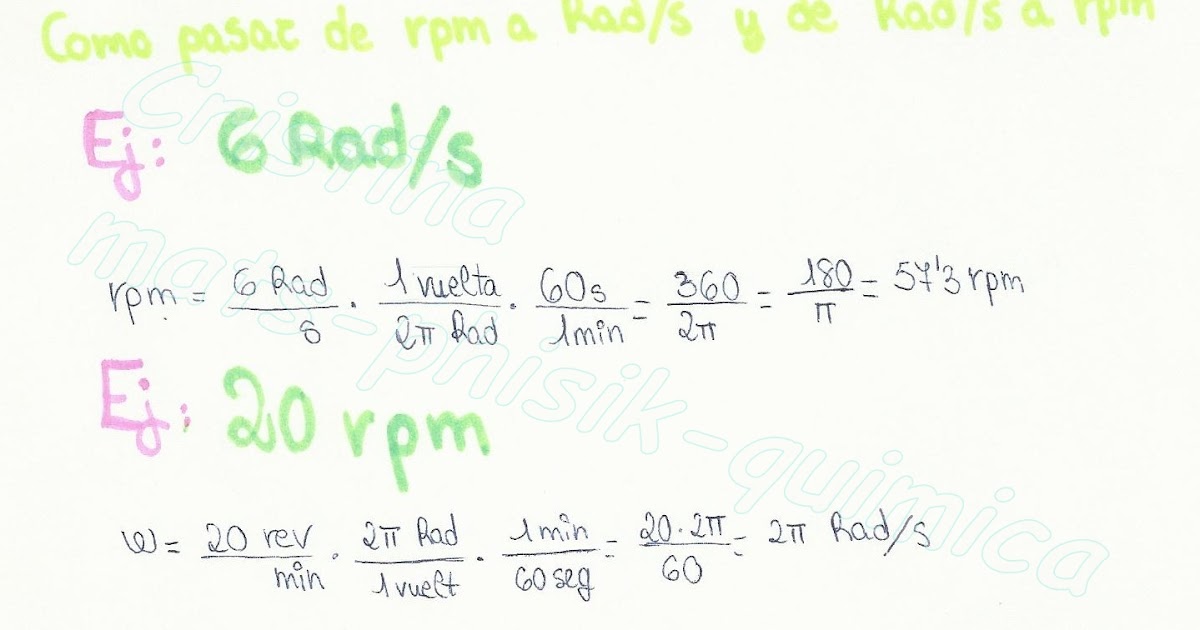 Como pasar de rpm a Rad/s y de Rad/s a rpm
Ej: 6 Rad/s
rpm = 6 Rad / s · 1 vuelta / 2π Rad · 60s / 1min = 360 / 2π = 180 / π = 57'3 rpm
Ej: 20 rpm
w = 20 rev / min · 2π Rad / 1 vuelt · 1min / 60 seg = 20·2π / 60 = 2π Rad/s
Cristina
mats-phisik-quimica